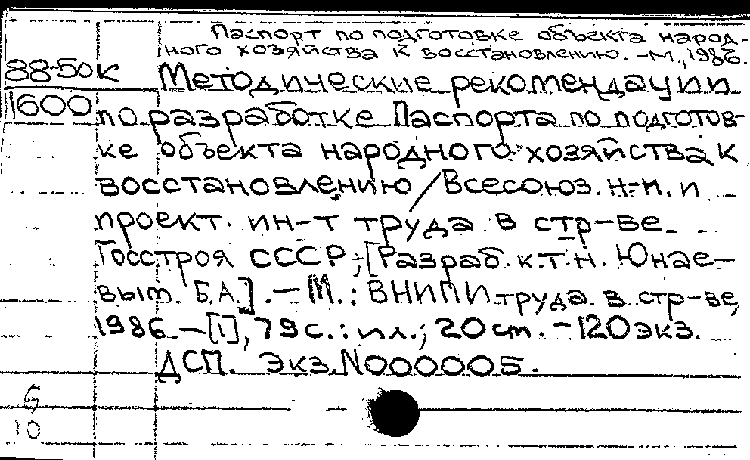 Паспорт по подготовке объекта народ-
ного хозяйства к восстановлению. -М., 1986.
88-50к Методические рекомендации
1600 по разработке Паспорта по подготов-
ке объекта народного хозяйства к
восстановлению / Всесоюз. н-и. и
проект. ин-т труда в стр-ве
Госстроя СССР; [Разраб. к.т.н. Юнае-
вым Б.А.]. - М.: ВНИПИ труда в стр-ве,
1986. - [1], 79 с.: ил.; 20 см. - 120 экз.
ДСП. Экз. N000005.
10